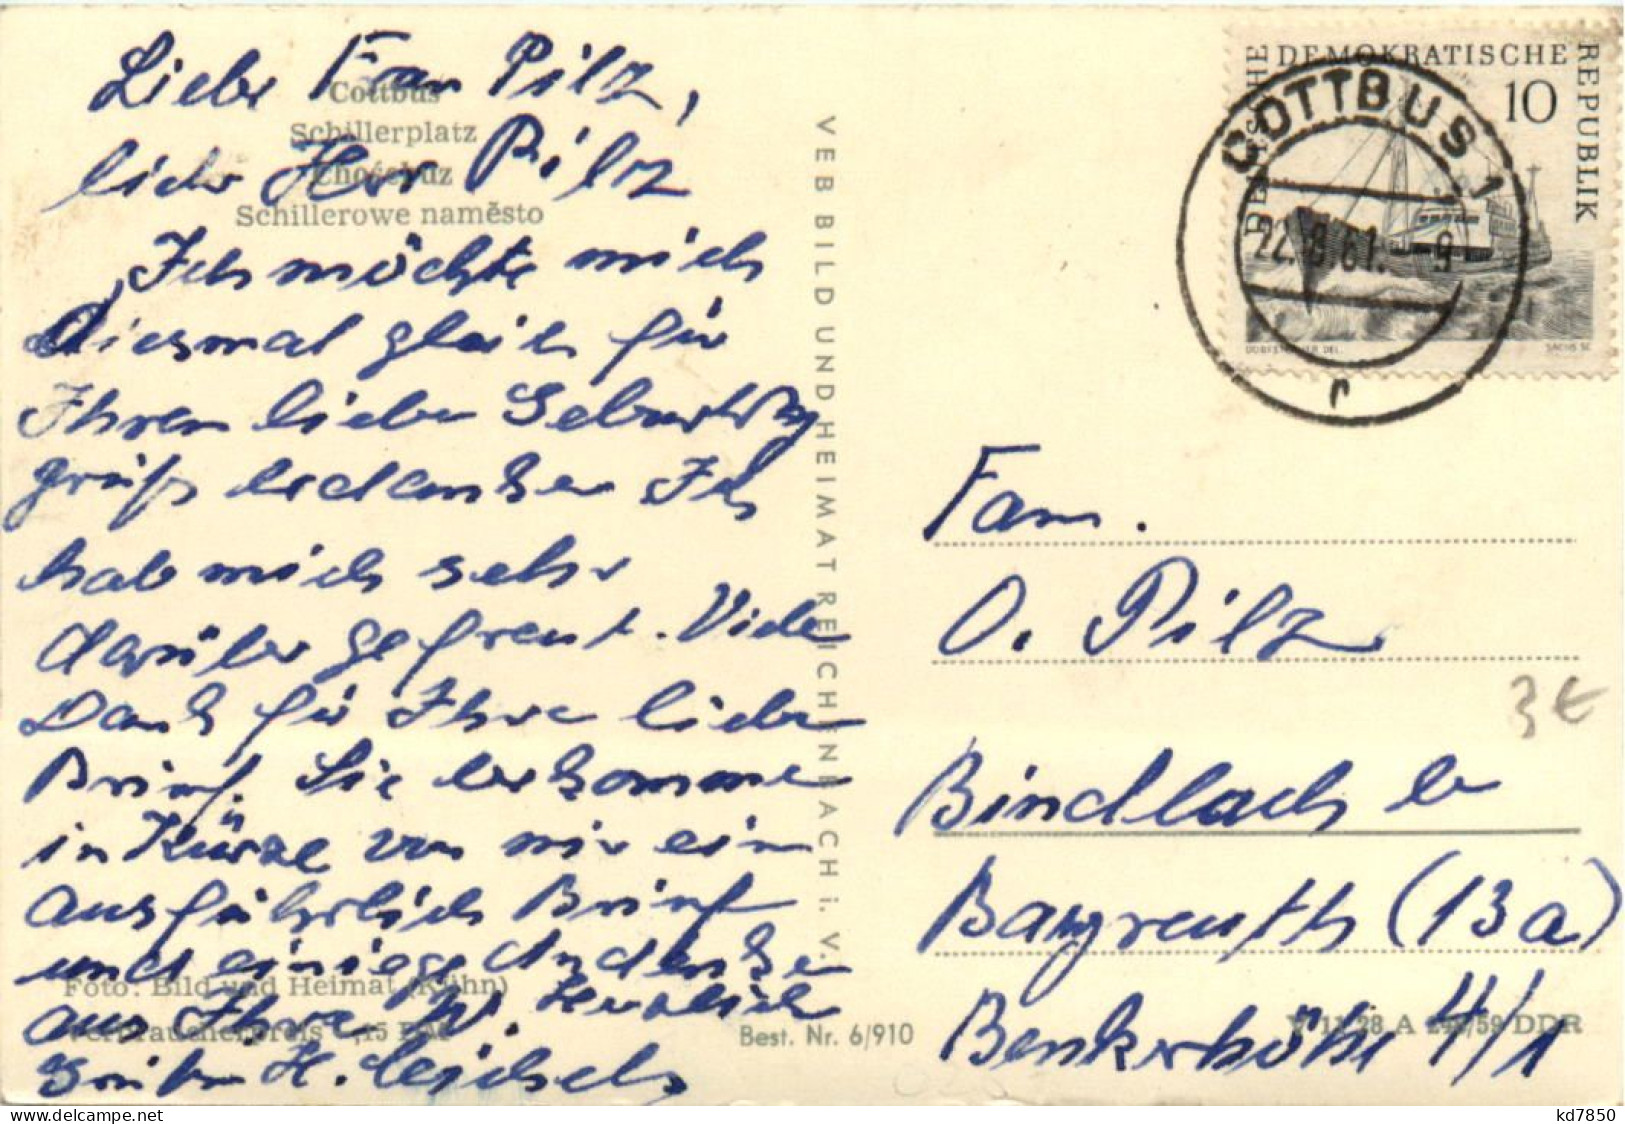 Liebe Frau Pilz,
lieber Herr Pilz
Cottbus
Schillerplatz
Chośebuz
Schillerowe naměsto
Ich möchte mich
diesmal gleich für
Ihren lieben Geburtstags
grüß bedanken Ich
hab mich sehr
darüber gefreut. Vielen
Dank für Ihre lieben
Brief. Sie bekommen
in Kürze von mir ein
ausführlich Brief
und einige Andenken
aus
Herzlich
Grüßen H.
Foto: Bild und Heimat (Kühn)
Verbraucherpreis -,15 DM
VEB BILD UND HEIMAT REICHENBACH i. V.
Best. Nr. 6/910
DEUTSCHE DEMOKRATISCHE REPUBLIK
10
COTTBUS 1
22.8.61. 9
r
Fam.
O. Pilz
3 €
Bindlach b
Bayreuth (13a)
Benkerhöhe 4/1
DDR
kd7850